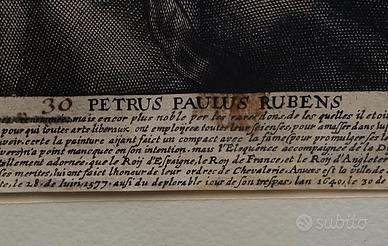 30 PETRUS PAULUS RUBENS
mais encor plus noble par les rares dons, de les quelles il etoit
pour qui toutes arts liberaux, ont employées toutes leur sciences, pour amasser dans luy
certe la painture aijant fait un compact avec la fames pour promulger les
n'a point manquee en son intention, mais l'Eloquence accompaignée de la
tallement adornée, que le Roij d'Espaigne, le Roij de France, et le Roij d'Angleter
ses merites, lui ont faict l'honeur de leur ordres de Chevalerie, Anvers est la ville de
le 28. de Iuin, 1577. ausi du deplorable iour de son trespas, lan 1640, le 30 de
subito